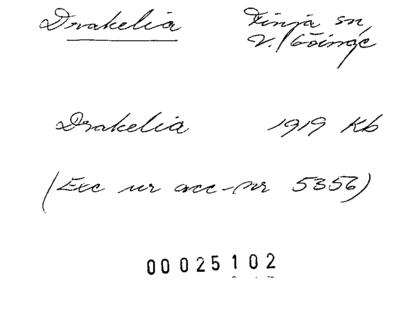 Drakelia Finja sn,
V. Göinge
Drakelia 1919 Kb
(Exc ur acc-nr 5356)
00 025102